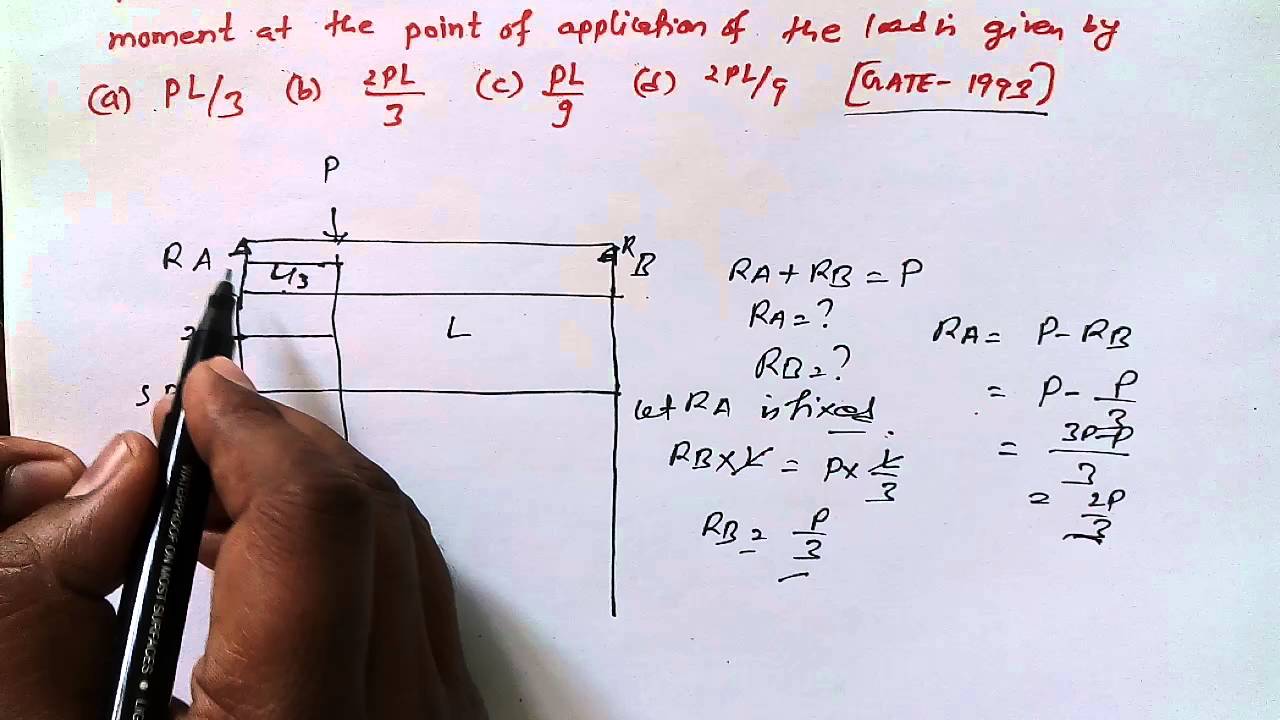 moment at the point of application of the load is given by
(a) PL/3 (b) 2PL/3 (c) PL/9 (d) 2PL/9 [GATE-1993]
P
RA
RB
L/3
L
RA + RB = P
RA = ?
RB = ?
let RA is fixed.
RB × L = P × L/3
RB = P/3
RA = P - RB
= P - P/3
= 3P-P/3
= 2P/3
WATERPROOF ON MOST SURFACES